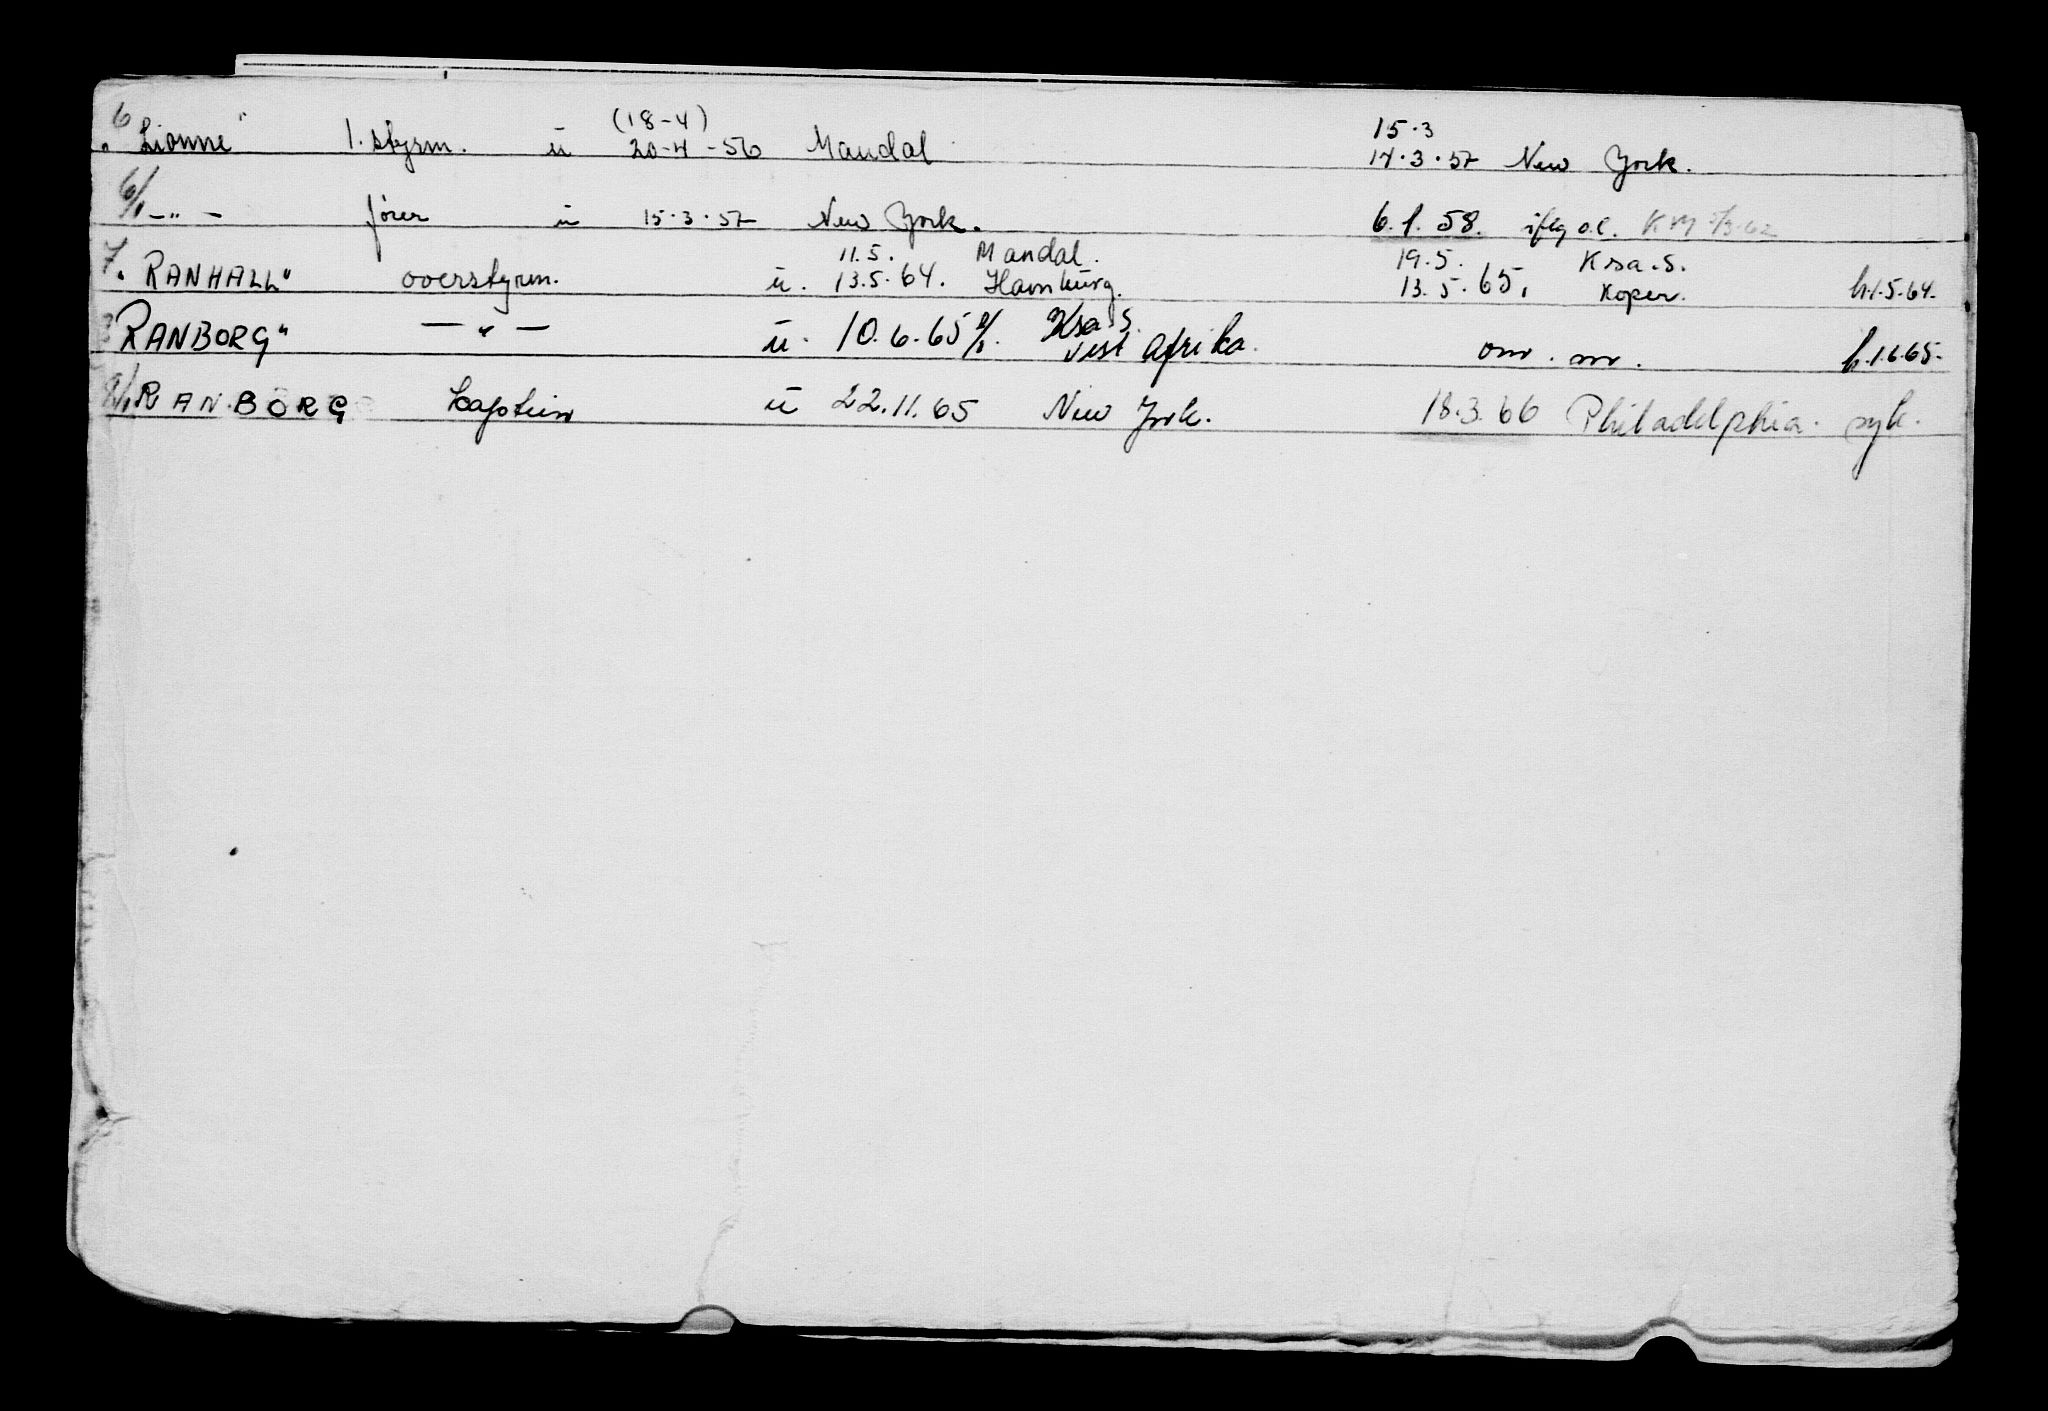 6 (18-4) 15.3
"Lionne" 1. styrm. u 20-4-56 Mandal 14.3.57 New York.
6/1 -"- fører u 15.3.57 New York. 6.1.58. iflg o.l. KM
7 11.5. Mandal. 19.5. Krsa.S.
"RANHALL" overstyrm. u. 13.5.64. Hamburg. 13.5.65. Koper. h.1.5.64.
Krsa.S.
"RANBORG" — " — u. 10.6.65 Vest Afrika. om. mr. h.1.6.65.
RANBORG kaptein u 22.11.65 New York. 18.3.66 Philadelphia. syk.